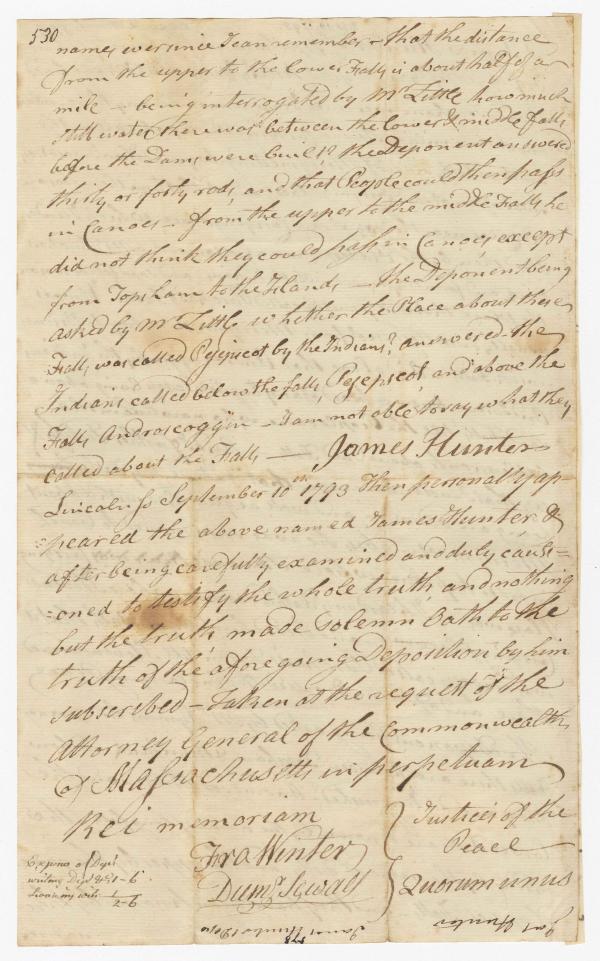 530
names ever since I can remember - that the distance
from the upper to the lower Falls is about half of a
mile - being interrogated by Mr Little how much
still water there was between the lower & middle falls
before the Dams were built? the Deponent answered
thirty or forty rods, and that People could then pass
in Canoes - from the upper to the middle Falls he
did not think they could pass in Canoes except
from Topsham to the Islands - the Deponent being
asked by Mr Little whether the Place about these
Falls was called Pejepscot by the Indians? answered the
Indians called below the falls Pejepscot, and above the
Falls Androscoggin - I am not able to say what they
called about the Falls — James Hunter
Lincoln Ss September 10th 1793 Then personally ap-
=peared the above named James Hunter &
after being carefully examined and duly cauti=
=oned to testify the whole truth and nothing
but the truth, made solemn Oath to the
truth of the aforegoing Deposition by him
subscribed - Taken at the request of the
Attorney General of the Commonwealth
of Massachusetts in perpetuam
Rei memoriam
Fra Winter
Dumr Sewall
Justices of the
Peace
Quorum unus
writing Depo &c 1-6
2-6
James Hunter's Depo
Jas Hunter